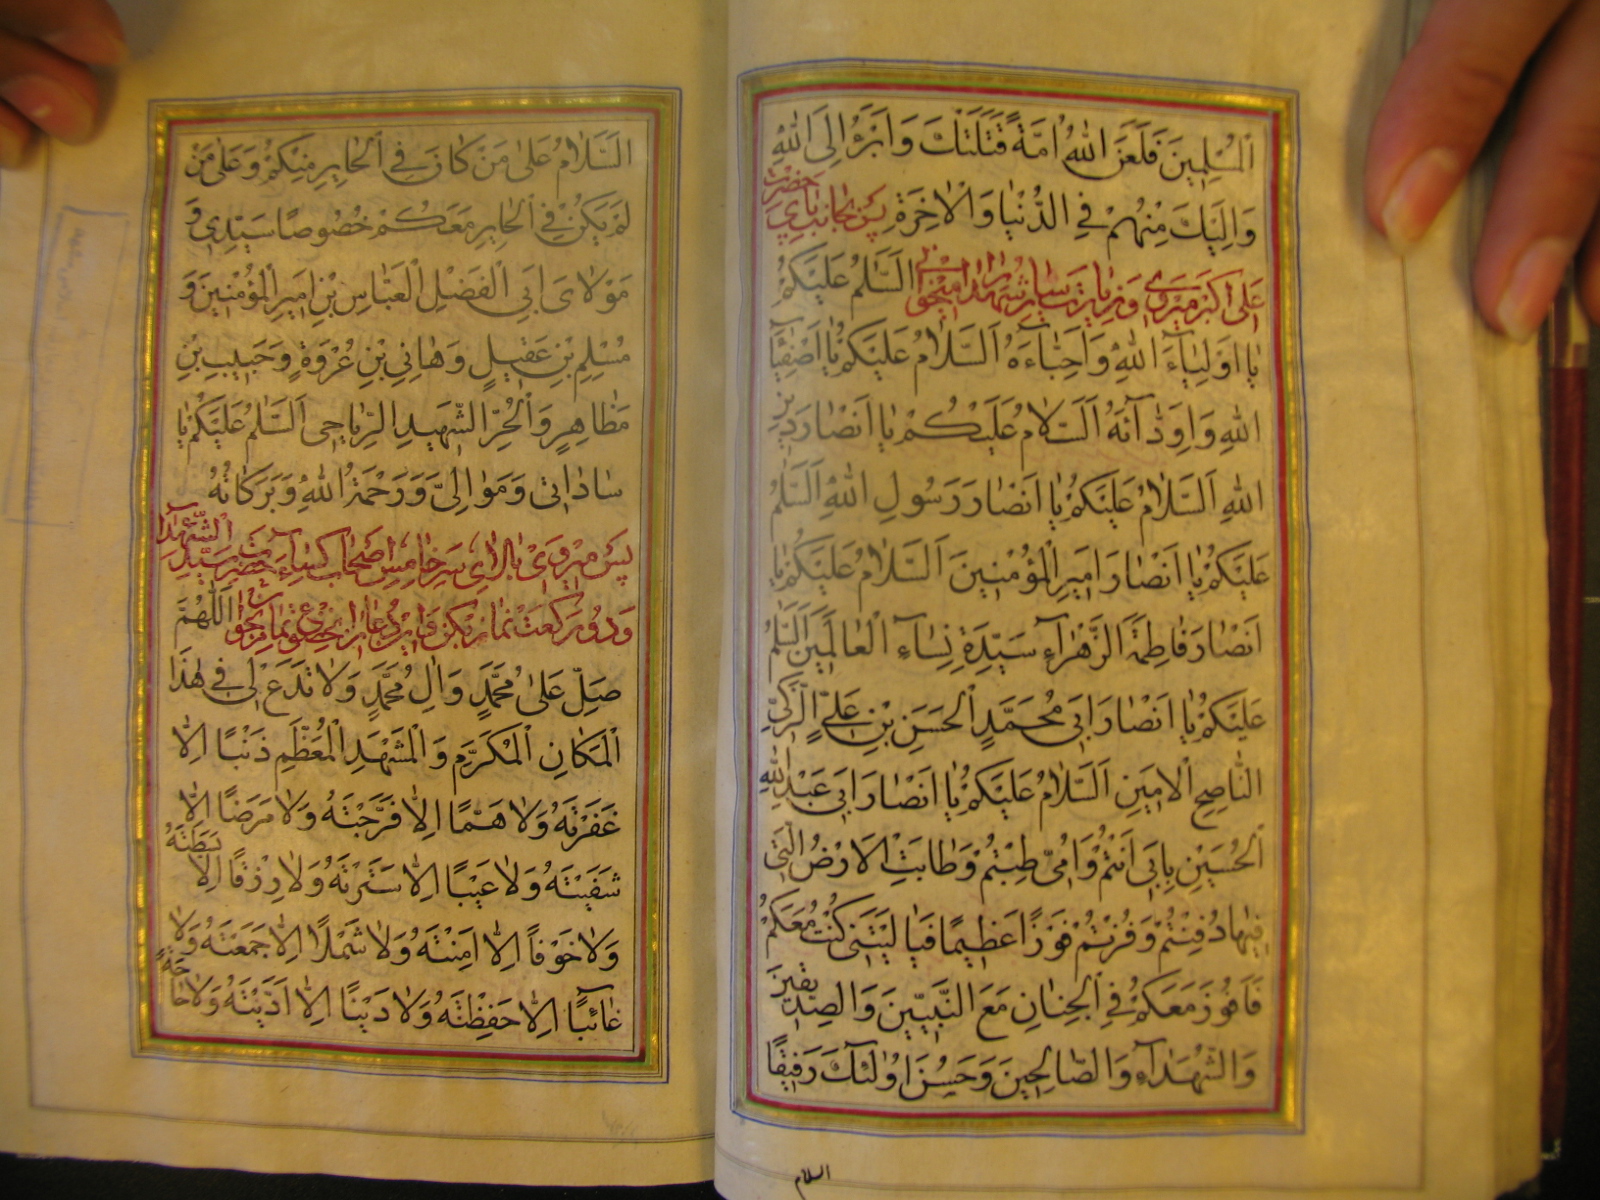 اَلْمُسْلِمِينَ فَلَعَنَ اللهُ اُمَّةً قَتَلَتْكَ وَاَبْرَءُ اِلَى اللهِ
وَاِلَيْكَ مِنْهُمْ فِي الدُّنْيَا وَالْاٰخِرَةِ پس بجانب پای حضرت
علی اکبر میروی و زیارت سایر شهدا میخوانی اَلسَّلٰمُ عَلَيْكُمْ
يٰا اَوْلِيٰاۤءَ اللهِ وَاَحِبّٰاءَهُ اَلسَّلٰامُ عَلَيْكُمْ يٰا اَصْفِيٰاۤءَ
اللهِ وَاَوِدّٰاۤئَهُ اَلسَّلٰامُ عَلَيْكُمْ يٰا اَنْصٰارَ دِينِ
اللهِ اَلسَّلٰامُ عَلَيْكُمْ يٰا اَنْصٰارَ رَسُولِ اللهِ اَلسَّلٰمُ
عَلَيْكُمْ يٰا اَنْصٰارَ اَمِيرِ الْمُؤْمِنِينَ اَلسَّلٰامُ عَلَيْكُمْ يٰا
اَنْصٰارَ فٰاطِمَةَ الزَّهْرٰاۤءِ سَيِّدَةِ نِسٰاۤءِ الْعٰالَمِينَ اَلسَّلٰمُ
عَلَيْكُمْ يٰا اَنْصٰارَ اَبِي مُحَمَّدٍ الْحَسَنِ بْنِ عَلِيٍّ الزَّكِيِّ
النّٰاصِحِ الْاَمِينِ اَلسَّلٰامُ عَلَيْكُمْ يٰا اَنْصٰارَ اَبِي عَبْدِ اللهِ
الْحُسَيْنِ بِاَبِي اَنْتُمْ وَاُمِّي طِبْتُمْ وَطٰابَتِ الْاَرْضُ الَّتِي
فِيهٰا دُفِنْتُمْ وَفُزْتُمْ فَوْزًا عَظِيمًا فَيٰا لَيْتَنِي كُنْتُ مَعَكُمْ
فَاَفُوزَ مَعَكُمْ فِي الْجِنٰانِ مَعَ النَّبِيِّينَ وَالصِّدِّيقِينَ
وَالشُّهَدٰاۤءِ وَالصّٰالِحِينَ وَحَسُنَ اُولٰئِكَ رَفِيقًا
السلام
اَلسَّلٰامُ عَلٰى مَنْ كٰانَ فِي الْحٰايِرِ مِنْكُمْ وَعَلٰى مَنْ
لَمْ يَكُنْ فِي الْحٰايِرِ مَعَكُمْ خُصُوصًا سَيِّدِي وَ
مَوْلٰاىَ اَبِي الْفَضْلِ الْعَبّٰاسِ بْنِ اَمِيرِ الْمُؤْمِنِينَ وَ
مُسْلِمِ بْنِ عَقِيلٍ وَهٰانِي بْنِ عُرْوَةٍ وَحَبِيبِ بْنِ
مَظٰاهِرٍ وَالْحُرِّ الشَّهِيدِ الرِّيٰاحِي اَلسَّلٰمُ عَلَيْكُمْ يٰا
سٰادٰاتِي وَمَوٰالِيَّ وَرَحْمَةُ اللهِ وَبَرَكٰاتُهُ
پس میروی بالای سر خامس اصحاب کساء حضرت سید الشهداء
و دو رکعت نماز بکن و این دعا را بخضوع تمام بخوان اَللّٰهُمَّ
صَلِّ عَلٰى مُحَمَّدٍ وَاٰلِ مُحَمَّدٍ وَلٰا تَدَعْ لِي فِي هٰذَا
الْمَكٰانِ الْمُكَرَّمِ وَالْمَشْهَدِ الْمُعَظَّمِ ذَنْبًا اِلّٰا
غَفَرْتَهُ وَلٰا هَمًّا اِلّٰا فَرَّجْتَهُ وَلٰا مَرَضًا اِلّٰا
شَفَيْتَهُ وَلٰا عَيْبًا اِلّٰا سَتَرْتَهُ وَلٰا رِزْقًا اِلّٰا بَسَطْتَهُ
وَلٰا خَوْفًا اِلّٰا اٰمَنْتَهُ وَلٰا شَمْلًا اِلّٰا جَمَعْتَهُ وَلٰا
غٰاۤئِبًا اِلّٰا حَفِظْتَهُ وَلٰا دَيْنًا اِلّٰا اَدَّيْتَهُ وَلٰا حٰاجَةً